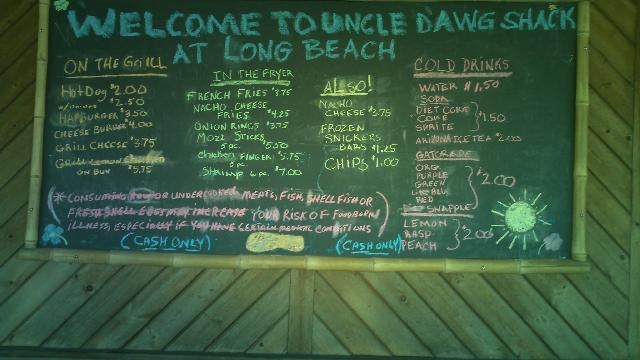 WELCOME TO UNCLE DAWG SHACK
AT LONG BEACH
ON THE GRILL
HOT DOG $2.00
$2.50
HAMBURGER $3.50
CHEESE BURGER $4.00
GRILL CHEESE $3.75
GRILL LEMON CHICKEN
ON BUN $5.75
IN THE FRYER
FRENCH FRIES $3.75
NACHO CHEESE
FRIES $4.25
ONION RINGS $3.75
MOZZ STICKS
5 pc. 5.50
Chicken FINGERS $5.75
5 pc.
SHRIMP $7.00
ALSO!
NACHO
CHEESE $3.75
FROZEN
SNICKERS
BARS $1.25
CHIPS $1.00
COLD DRINKS
WATER $1.50
SODA
DIET COKE
COKE $1.50
SPRITE
ARIZONA ICE TEA $2.00
GATORADE
ORG
PURPLE
GREEN $2.00
BLU
RED
SNAPPLE
LEMON
RASP 2.00
PEACH
* CONSUMING RAW OR UNDERCOOKED MEATS, FISH, SHELLFISH OR
FRESH SHELL EGGS MAY INCREASE YOUR RISK OF FOODBORN
ILLNESS, ESPECIALLY IF YOU HAVE CERTAIN MEDICAL CONDITIONS
(CASH ONLY) (CASH ONLY)